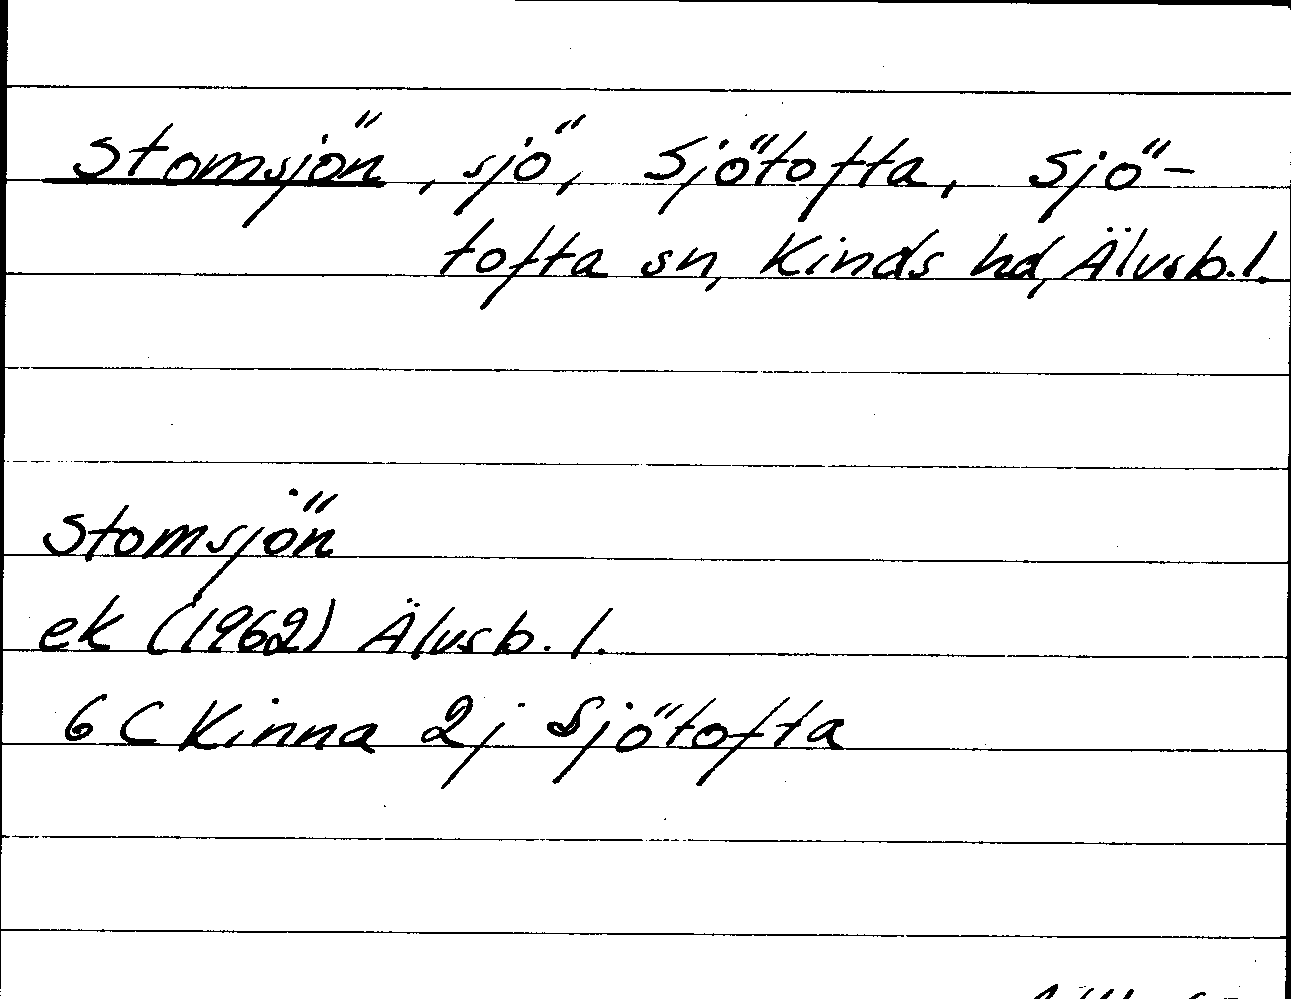 Stomsjön, sjö, Sjötofta, Sjö-
tofta sn, Kinds hd, Älvsb.l.
Stomsjön
ek (1962) Älvsb.l.
6 C Kinna 2j Sjötofta